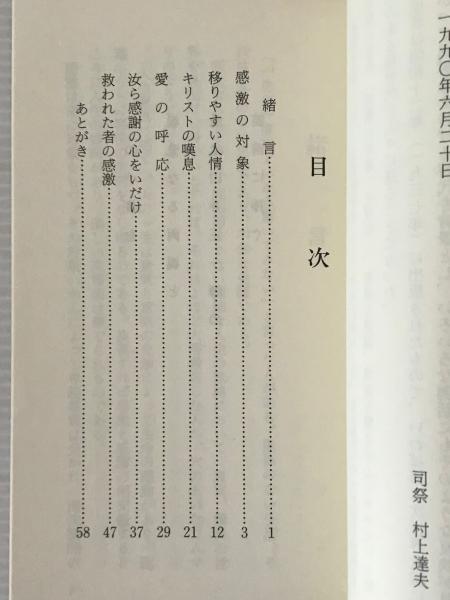 一九九〇年六月二十日
司祭 村上達夫
目次
緒言……1
感激の対象……3
移りやすい人情……12
キリストの嘆息……21
愛の呼応……29
汝ら感謝の心をいだけ……37
救われた者の感激……47
あとがき……58